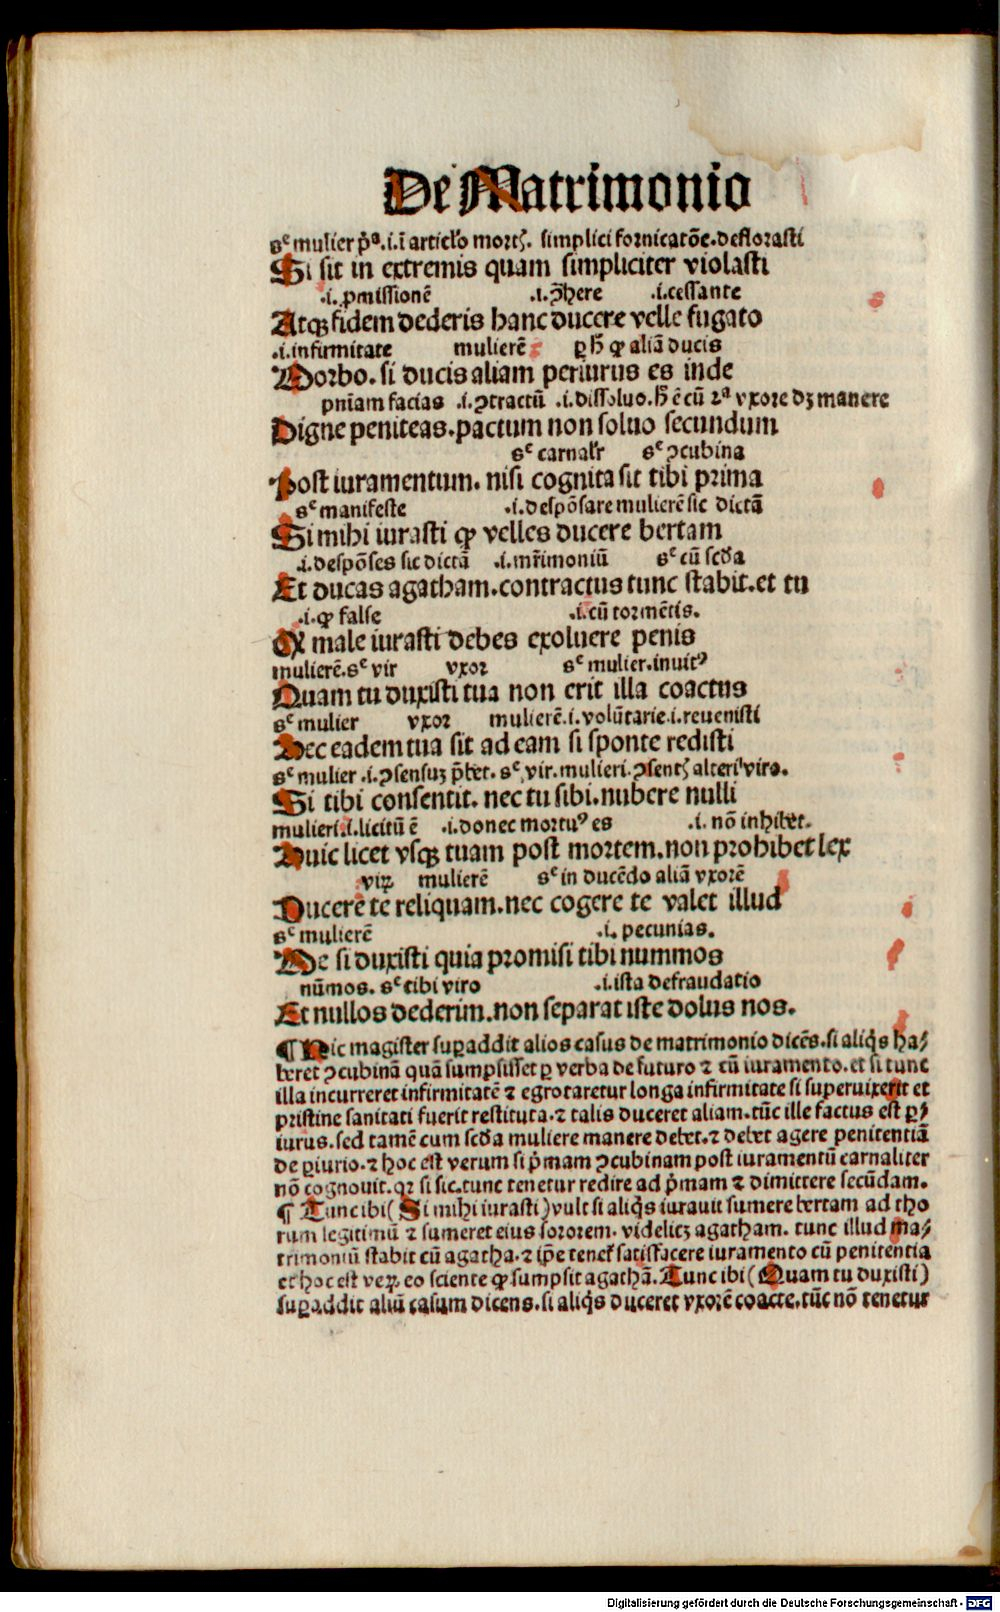 De Matrimonio
sᶜ mulier p̄ᵃ .i. ī articl̓o mort͛. simplici fornicatōe. deflorasti
Si sit in extremis quam simpliciter violasti
.i. ꝑmissionē .i. ꝯ̄here .i. cessante
Atqꝫ fidem dederis hanc ducere velle fugato
.i. infirmitate mulierē ꝑ h̄ ꝙ aliā ducis
Morbo. si ducis aliam periurus es inde
pn̄iam facias .i. ꝯtractū .i. dissoluo. h̄ ē cū 2ᵃ vxore dꝫ manere
Digne peniteas. pactum non soluo secundum
sᶜ carnalr̄ sᶜ ꝯcubina
Post iuramentum. nisi cognita sit tibi prima
sᶜ manifeste .i. despōsare mulierē sic dictā
Si mihi iurasti ꝙ velles ducere bertam
.i. despōses sic dictā .i. mr̄imoniū sᶜ cū scd̓a
Et ducas agatham. contractus tunc stabit. et tu
.i. ꝙ false .i. cū tormētis.
Qꝛ male iurasti debes exoluere penis
mulierē. sᶜ vir vxor sᶜ mulier. inuit⁹
Quam tu duxisti tua non erit illa coactus
sᶜ mulier vxor mulierē .i. volūtarie .i. reuenisti
Hec eadem tua sit ad eam si sponte redisti
sᶜ mulier .i. ꝯsensuꝫ p̄bet. sᶜ vir. mulieri. ꝯsent͛ alteri viro.
Si tibi consentit. nec tu sibi. nubere nulli
mulieri .i. licitū ē .i. donec mortu⁹ es .i. nō inhibet.
Huic licet vsqꝫ tuam post mortem. non prohibet lex
viꝝ mulierē sᶜ in ducēdo aliā vxorē
Ducere te reliquam. nec cogere te valet illud
sᶜ mulierē .i. pecunias.
Me si duxisti quia promisi tibi nummos
nūmos. sᶜ tibi viro .i. ista defraudatio
Et nullos dederim. non separat iste dolus nos.
¶ Hic magister suꝑaddit alios casus de matrimonio dicēs. si aliq̓s ha⸗
beret ꝯcubinā quā sumpsisset ꝑ verba de futuro ⁊ cū iuramento. et si tunc
illa incurreret infirmitatē ⁊ egrotaretur longa infirmitate si superuixerit et
pristine sanitati fuerit restituta. ⁊ talis duceret aliam. tūc ille factus est ꝑ⸗
iurus. sed tamē cum scd̓a muliere manere debet. ⁊ debet agere penitentiā
de ꝑiurio. ⁊ hoc est verum si p̄mam ꝯcubinam post iuramentū carnaliter
nō cognouit. qꝛ si sic. tunc tenetur redire ad p̄mam ⁊ dimittere secūdam.
¶ Tunc ibi (Si mihi iurasti) vult si aliq̓s iurauit sumere bertam ad tho
rum legitimū ⁊ sumeret eius sororem. videlicꝫ agatham. tunc illud ma⸗
trimoniū stabit cū agatha. ⁊ ip̄e tenet͛ satisfacere iuramento cū penitentia
et hoc est veꝝ. eo sciente ꝙ sumpsit agathā. Tunc ibi (Quam tu duxisti)
suꝑaddit aliū casum dicens. si aliq̓s duceret vxorē coacte. tūc nō tenetur
Digitalisierung gefördert durch die Deutsche Forschungsgemeinschaft - DFG